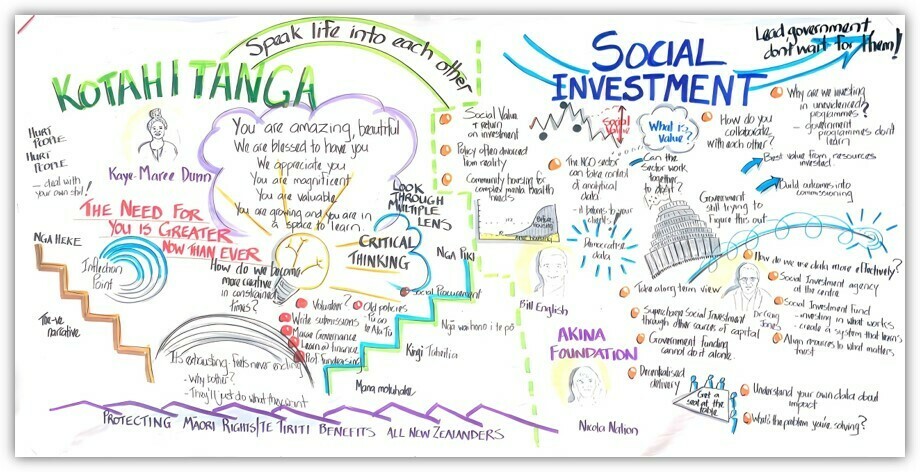 KOTAHITANGA
Speak life into each other
HURT
PEOPLE
HURT
PEOPLE
- deal with
your own
Kaye-Maree Dunn
You are amazing, beautiful
We are blessed to have you
We appreciate you
You are magnificent
You are valuable
You are growing and you are in
a space to learn
THE NEED FOR
YOU IS GREATER
NOW THAN EVER
LOOK
THROUGH
MULTIPLE
LENS
CRITICAL
THINKING
NGA HEKE
Inflection
Point
narrative
How do we become
more creative
in constrained
times?
Volunteer?
Write submissions
Māori Governance
Learn
Prof fundraising
Old policies
Social Procurement
NGA PIKI
Ngā wa heno i te pō
Kingi Tāwhia
Mana motuhake
It's exhausting, feels never ending
- Why bother?
- They'll just do what they want
PROTECTING MĀORI RIGHTS/TE TIRITI BENEFITS ALL NEW ZEALANDERS
SOCIAL
INVESTMENT
Lead government
don't wait for them!
Social Value
+ return
on investment
Policy often divorced
from reality
Community housing for
complex mental health
needs
Before
housing
Social
Value
What is
Value?
The NGO sector
can take control
of analytical
data
- it belongs to your
clients!
Democratised
data
Bill English
Can the
sector work
together
to do it?
How do you
collaborate
with each other?
Why are we investing
in unevidenced
programmes?
- government
programmes don't
learn
Best value from resources
invested
Build outcomes into
commissioning
Government
still trying to
figure this out
How do we use data more effectively?
Social Investment agency
at the centre
Social Investment Fund
- investing in what works
- create a system that learns
Align resources to what matters
most
Dr Craig
Jones
Take a long term view
Supercharge Social Investment
through other sources of capital
Government funding
cannot do it alone
Decentralised
delivery
AKINA
FOUNDATION
Nicola Nation
Get a
seat at the
table
Understand your own data about
impact
What's the problem you're solving?